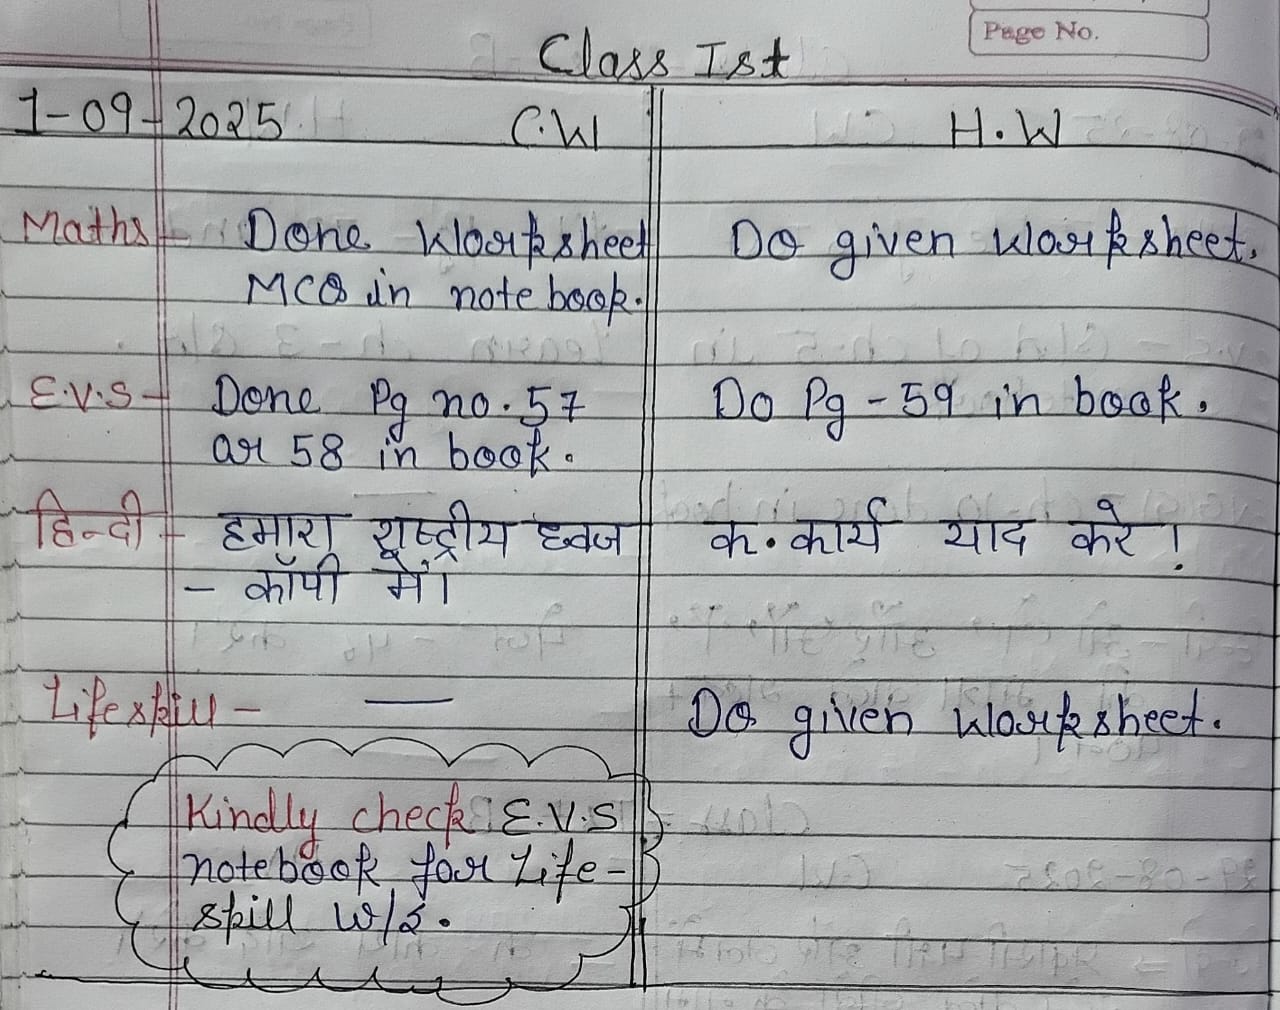 Page No.
Class Ist
1-09-2025 C.W H.W
Maths - Done Worksheet Do given worksheet.
MCQ in notebook.
E.V.S - Done Pg no. 57 Do Pg - 59 in book.
or 58 in book.
हिन्दी - हमारा राष्ट्रीय ध्वज क. कार्य याद करे।
- कॉपी में।
Lifeskill - — Do given worksheet.
Kindly check E.V.S
notebook for Life-
skill W/S.